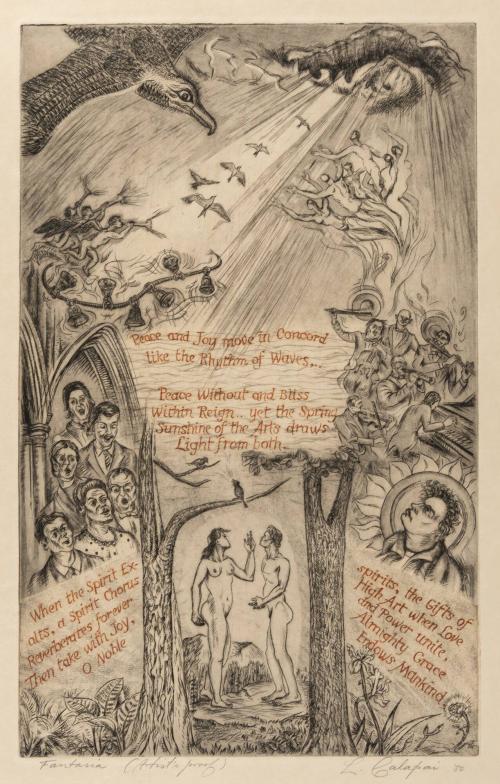 Peace and Joy move in Concord
like the Rhythm of Waves...
Peace Without and Bliss
Within Reign.. yet the Spring
Sunshine of the Arts draws
Light from both.
When the Spirit Ex-
alts, a Spirit Chorus
Reverberates forever.
Then take with Joy,
O Noble
spirits, the Gifts of
High Art when Love
and Power unite,
Almighty Grace
Endows Mankind.
Fantasia (Artist's proof)
L. Calapai '50